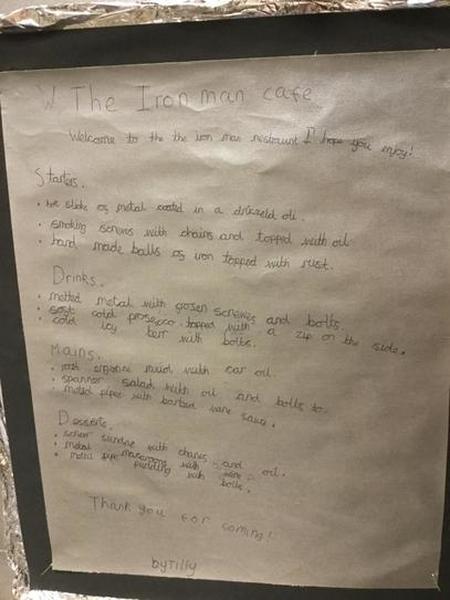 W The Iron man cafe
Welcome to the the iron man restraunt I hope you enjoy!
Starters.
• hot slide of metal coated in a drizzeld oil.
• smoking screws with chains and topped with oil
• hand made balls of iron topped with rust.
Drinks.
• melted metal with frosen screws and bolts.
• cold prosecco topped with a zip on the side.
• cold icy berr with bolts.
Mains.
• mud with car oil.
• spanner salad with oil and bolts to.
• metal pipes with barbed wire sauce.
Desserts.
• screw sundae with chanes and oil.
• metal with wire
• metal pipe pudding with bolts.
Thank you for coming!
by Tilly